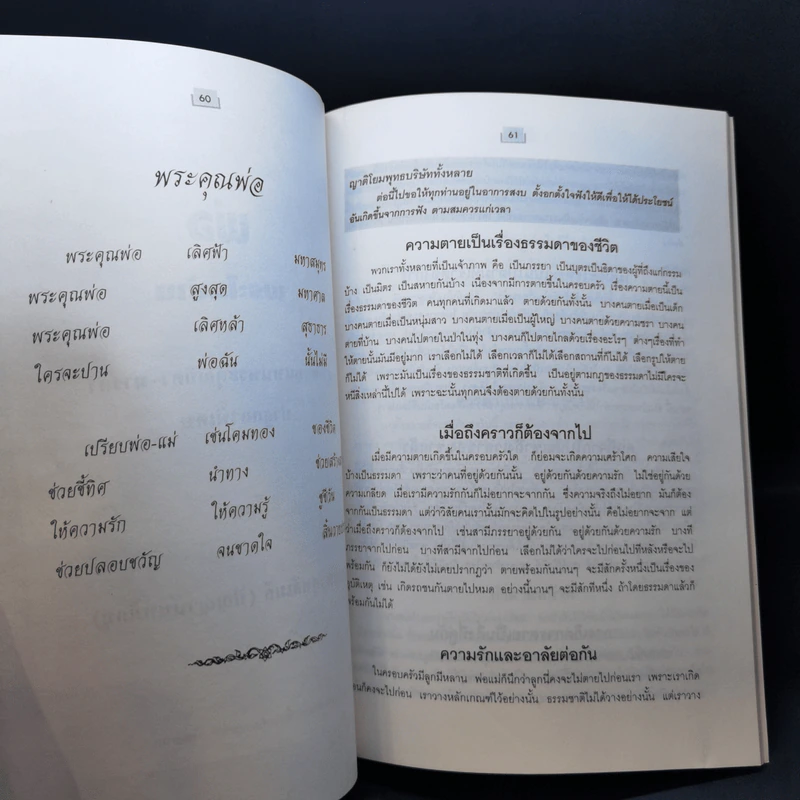 60
พระคุณพ่อ
พระคุณพ่อ เลิศฟ้า มหาสมุทร
พระคุณพ่อ สูงสุด มหาศาล
พระคุณพ่อ เลิศหล้า สุธาธาร
ใครจะปาน พ่อฉัน นั้นไม่มี
เปรียบพ่อ-แม่ เช่นโคมทอง ของชีวิต
ช่วยชี้ทิศ นำทาง
ให้ความรัก ให้ความรู้ ชูชีวัน
ช่วยปลอบขวัญ จนขาดใจ
61
ญาติโยมพุทธบริษัททั้งหลาย
ต่อนี้ไปขอให้ทุกท่านอยู่ในอาการสงบ ตั้งอกตั้งใจฟังให้ดีเพื่อให้ได้ประโยชน์
อันเกิดขึ้นจากการฟัง ตามสมควรแก่เวลา
ความตายเป็นเรื่องธรรมดาของชีวิต
พวกเราทั้งหลายที่เป็นเจ้าภาพ คือ เป็นภรรยา เป็นบุตรเป็นธิดาของผู้ที่ถึงแก่กรรม
บ้าง เป็นมิตร เป็นสหายกันบ้าง เนื่องจากมีการตายขึ้นในครอบครัว เรื่องความตายนี้เป็น
เรื่องธรรมดาของชีวิต คนทุกคนที่เกิดมาแล้ว ตายด้วยกันทั้งนั้น บางคนตายเมื่อเป็นเด็ก
บางคนตายเมื่อเป็นหนุ่มสาว บางคนตายเมื่อเป็นผู้ใหญ่ บางคนตายด้วยความชรา บางคน
ตายที่บ้าน บางคนไปตายในป่าในทุ่ง บางคนก็ไปตายไกลด้วยเรื่องอะไรๆ ต่างๆเรื่องที่ทำ
ให้ตายนั้นมันมีอยู่มาก เราเลือกไม่ได้ เลือกเวลาก็ไม่ได้เลือกสถานที่ก็ไม่ได้ เลือกรูปให้ตาย
ก็ไม่ได้ เพราะมันเป็นเรื่องของธรรมชาติที่เกิดขึ้น เป็นอยู่ตามกฎของธรรมดาไม่มีใครจะ
หนีสิ่งเหล่านี้ไปได้ เพราะฉะนั้นทุกคนจึงต้องตายด้วยกันทั้งนั้น
เมื่อถึงคราวก็ต้องจากไป
เมื่อมีความตายเกิดขึ้นในครอบครัวใด ก็ย่อมจะเกิดความเศร้าโศก ความเสียใจ
บ้างเป็นธรรมดา เพราะว่าคนที่อยู่ด้วยกันนั้น อยู่ด้วยกันด้วยความรัก ไม่ใช่อยู่กันด้วย
ความเกลียด เมื่อเรามีความรักกันก็ไม่อยากจะจากกัน ซึ่งความจริงถึงไม่อยาก มันก็ต้อง
จากกันเป็นธรรมดา แต่ว่าวิสัยคนเรานั้นมักจะคิดไปในรูปอย่างนั้น คือไม่อยากจะจาก แต่
ว่าเมื่อถึงคราวก็ต้องจากไป เช่นสามีภรรยาอยู่ด้วยกัน อยู่ด้วยกันด้วยความรัก บางที
ภรรยาจากไปก่อน บางทีสามีจากไปก่อน เลือกไม่ได้ว่าใครจะไปก่อนไปทีหลังหรือจะไป
พร้อมกัน ก็ยังไม่ได้ยังไม่เคยปรากฏว่า ตายพร้อมกันนานๆ จะมีสักครั้งหนึ่งเป็นเรื่องของ
อุบัติเหตุ เช่น เกิดรถชนกันตายไปหมด อย่างนี้นานๆ จะมีสักทีหนึ่ง ถ้าโดยธรรมดาแล้วก็
พร้อมกันไม่ได้
ความรักและอาลัยต่อกัน
ในครอบครัวมีลูกมีหลาน พ่อแม่ก็นึกว่าลูกนี่คงจะไม่ตายไปก่อนเรา เพราะเราเกิด
ก่อนก็คงจะไปก่อน เราวางหลักเกณฑ์ไว้อย่างนั้น ธรรมชาติไม่ได้วางอย่างนั้น แต่เราวาง